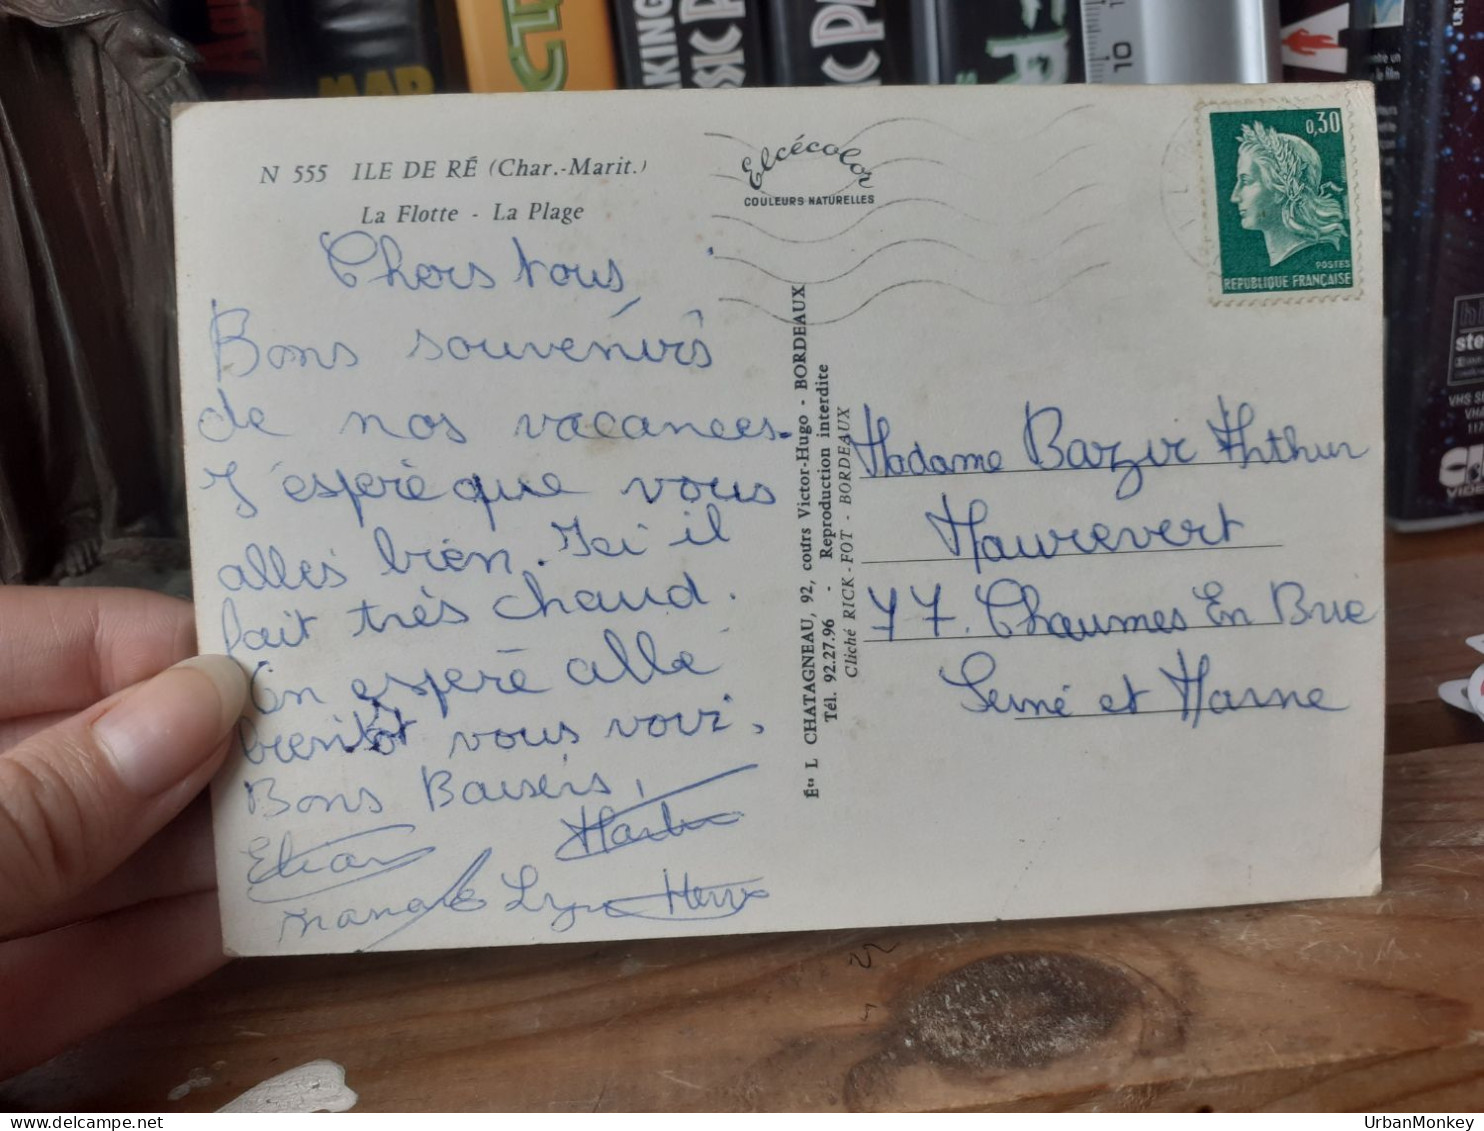 N 555 ILE DE RÉ (Char.-Marit.)
La Flotte - La Plage
Elcécolor
COULEURS NATURELLES
0,30
POSTES
REPUBLIQUE FRANÇAISE
Chers tous,
Bons souvenirs
de nos vacances.
J'éspéré que vous
alles bien. Ici il
fait très chaud.
On espéré allé
bientôt vous voir.
Bons Baisers,
Hervé
Éts L CHATAGNEAU, 92, cours Victor-Hugo - BORDEAUX
Tél. 92.27.96 - Reproduction interdite
Cliché RICK-FOT - BORDEAUX
Madame Bazir Arthur
Maurevert
77. Chaumes En Brie
Seiné et Marne
UrbanMonkey